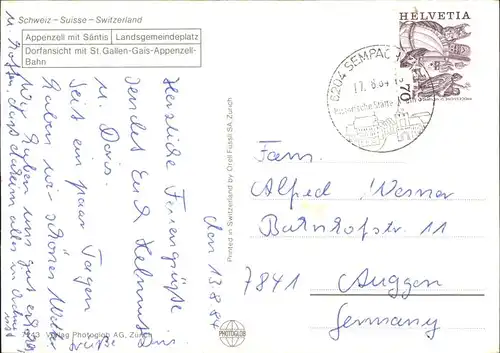 Schweiz – Suisse – Switzerland
Appenzell mit Säntis
Landsgemeindeplatz
Dorfansicht mit St. Gallen-Gais-Appenzell-
Bahn
HELVETIA
70
6204 SEMPACH
17. 8. 84
Historische Stätte
Den 13 8 84
Herzliche Feriengrüße
sendet Euch Helmut
u. Doris.
Seit ein paar Tagen
haben wir schönes Wetter
Wir haben uns gut erholt
u. hoffen, dass daheim alles in Ordnung
ist
Grüße
Doris
Fam.
Alfred Werner
Bahnhofstr 11
7841 Auggen
Germany
Printed in Switzerland by Orell Füssli SA, Zurich
Photoglob AG, Zürich
PHOTOGLOB